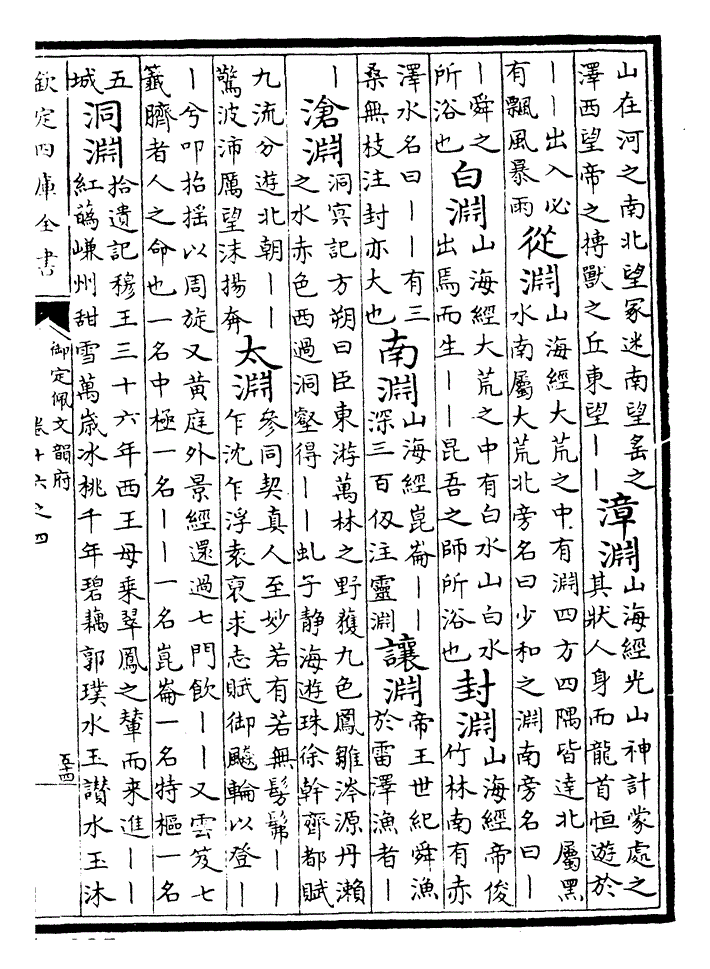 山在河之南北望冢迷南望䍃之
澤西望帝之搏獸之丘東望丨丨
漳淵
山海經光山神計蒙處之
其狀人身而龍首恒遊於
丨丨出入必
有飄風暴雨
從淵
山海經大荒之中有淵四方四隅皆達北屬黑
水南屬大荒北旁名曰少和之淵南旁名曰丨
丨舜之
所浴也
白淵
山海經大荒之中有白水山白水
出焉而生丨丨昆吾之師所浴也
封淵
山海經帝俊
竹林南有赤
澤水名曰丨丨有三
桑無枝注封亦大也
南淵
山海經崑崙丨丨
深三百仭注靈淵
讓淵
帝王世紀舜漁
於雷澤漁者丨
丨
滄淵
洞㝠記方朔曰臣東游萬林之野獲九色鳳雛涔源丹瀨
之水赤色西過洞壑得丨丨虬子静海遊珠徐幹齊都賦
九流分遊北朝丨丨
驚波沛厲望沫揚奔
太淵
參同契真人至妙若有若無髣髴丨丨
乍沈乍浮袁裒求志賦御飈輪以登丨
丨兮叩招揺以周旋又黄庭外景經還過七門飲丨丨又雲笈七
籖臍者人之命也一名中極一名丨丨一名崑崙一名特樞一名
五
城
洞淵
拾遺記穆王三十六年西王母乗翠鳳之輦而来進丨丨
紅蘤嵊州甜雪萬歲冰桃千年碧藕郭璞水玉讃水玉沐
欽定四庫全書
御定佩文韻府
卷十六之四
五四